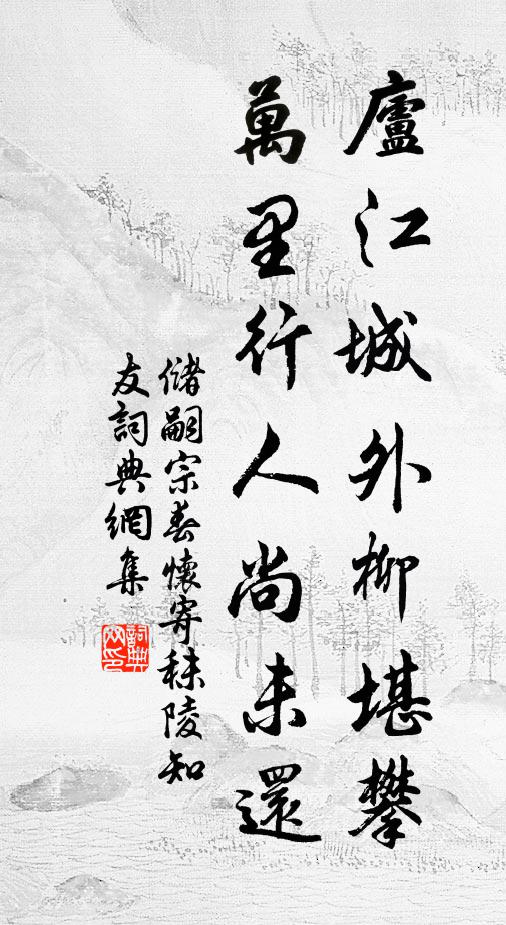 廬江城外柳堪攀
萬里行人尚未還
儲嗣宗春懷寄秣陵知
友詞典網集
詞典